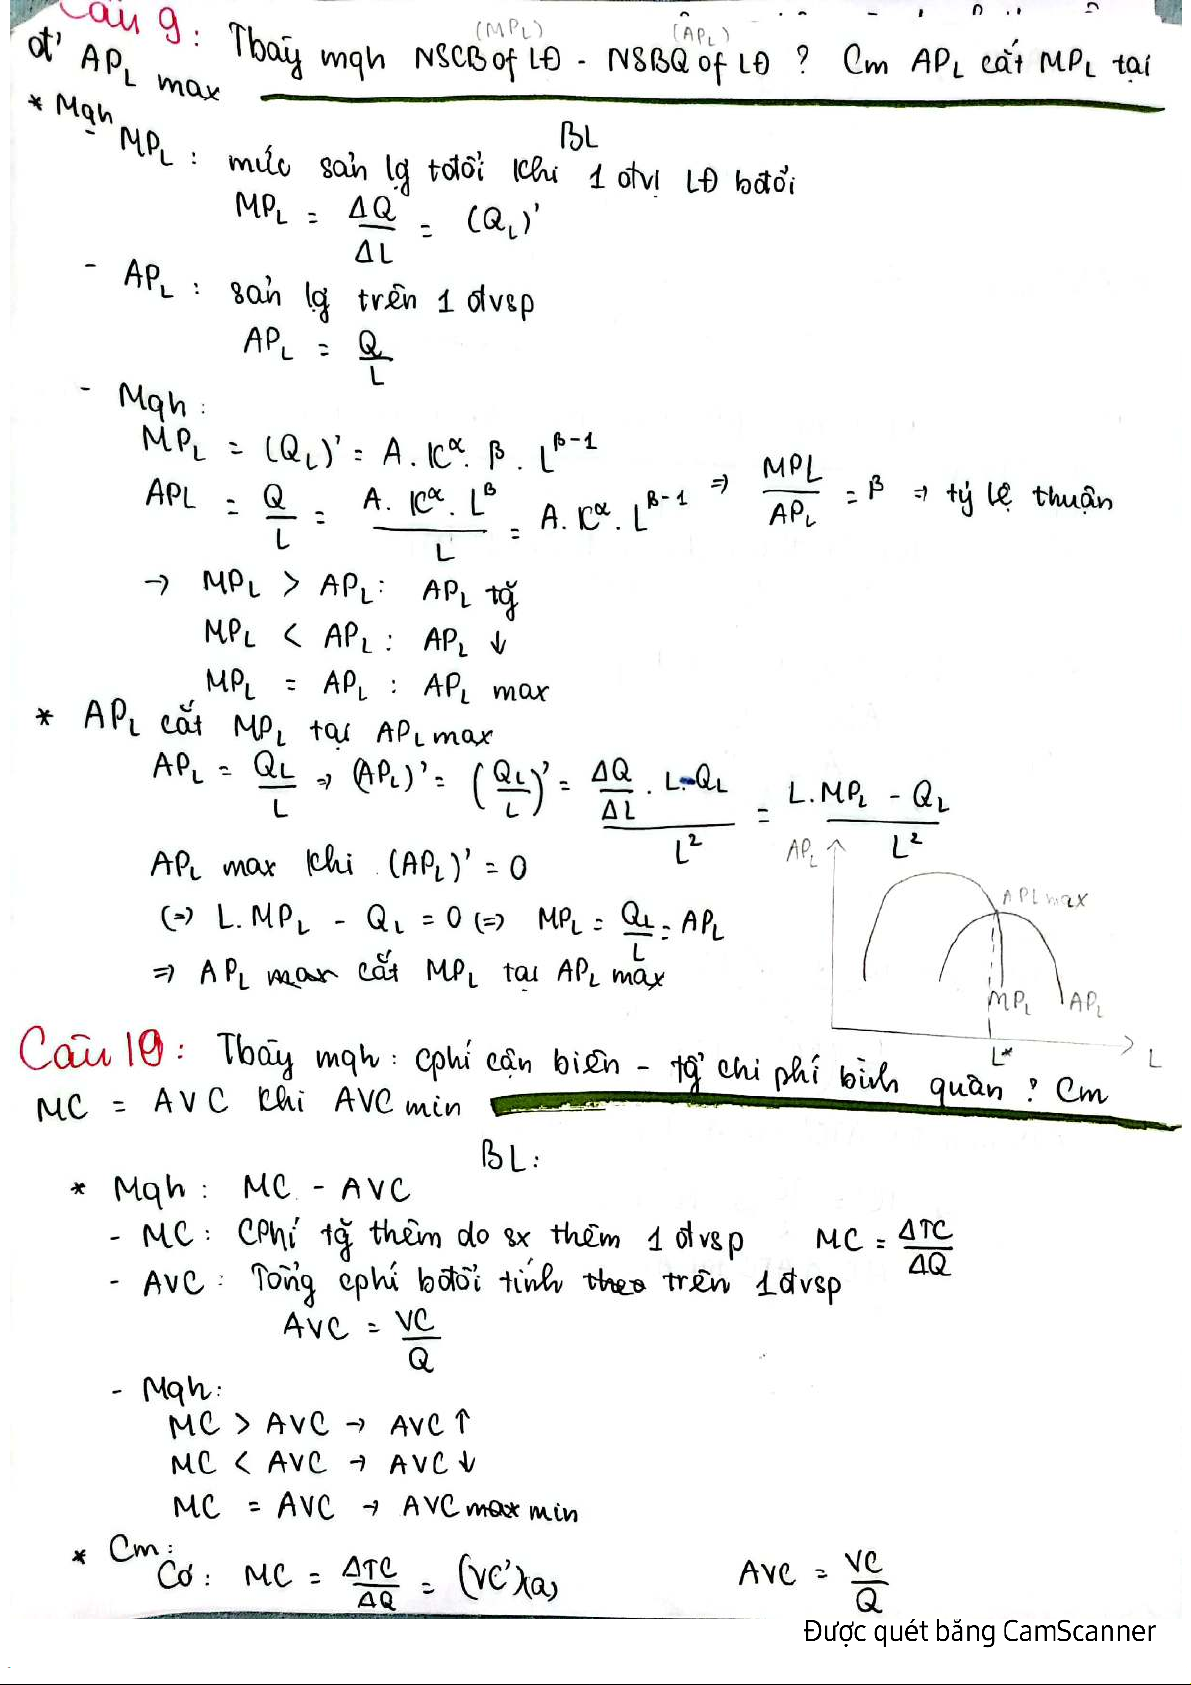 Câu 9: Tbày mqh NSCB of LĐ - NSBQ of LĐ ? Cm APL cắt MPL tại
(MPL) (APL)
đ' APL max
* Mqh
- MPL : mức sản lg tđổi khi 1 đvị LĐ bđổi
BL
MPL = ΔQ/ΔL = (QL)'
- APL : sản lg trên 1 đvsp
APL = Q/L
- Mqh :
MPL = (QL)' = A.K^α.β.L^β-1
APL = Q/L = A.K^α.L^β/L = A.K^α.L^β-1 ⇒ MPL/APL = β ⇒ tỷ lệ thuận
→ MPL > APL : APL tg
MPL < APL : APL ↓
MPL = APL : APL max
* APL cắt MPL tại APL max
APL = QL/L ⇒ (APL)' = (QL/L)' = ΔQ/ΔL . L - QL/L² = L.MPL - QL/L²
APL max khi (APL)' = 0
(=) L.MPL - QL = 0 (=) MPL = QL/L = APL
⇒ APL max cắt MPL tại APL max
APL
APL max
MPL
APL
L*
L
Câu 10: Tbày mqh : cphí cận biên - tg chi phí bình quân ? Cm
MC = AVC khi AVC min
BL:
* Mqh : MC - AVC
- MC : CPhí tg thêm do sx thêm 1 đvsp MC = ΔTC/ΔQ
- AVC : Tổng cphí bđổi tính theo trên 1 đvsp
AVC = VC/Q
- Mqh:
MC > AVC → AVC ↑
MC < AVC → AVC ↓
MC = AVC → AVC max min
* Cm:
Có : MC = ΔTC/ΔQ = (VC')(Q) AVC = VC/Q
Được quét bằng CamScanner